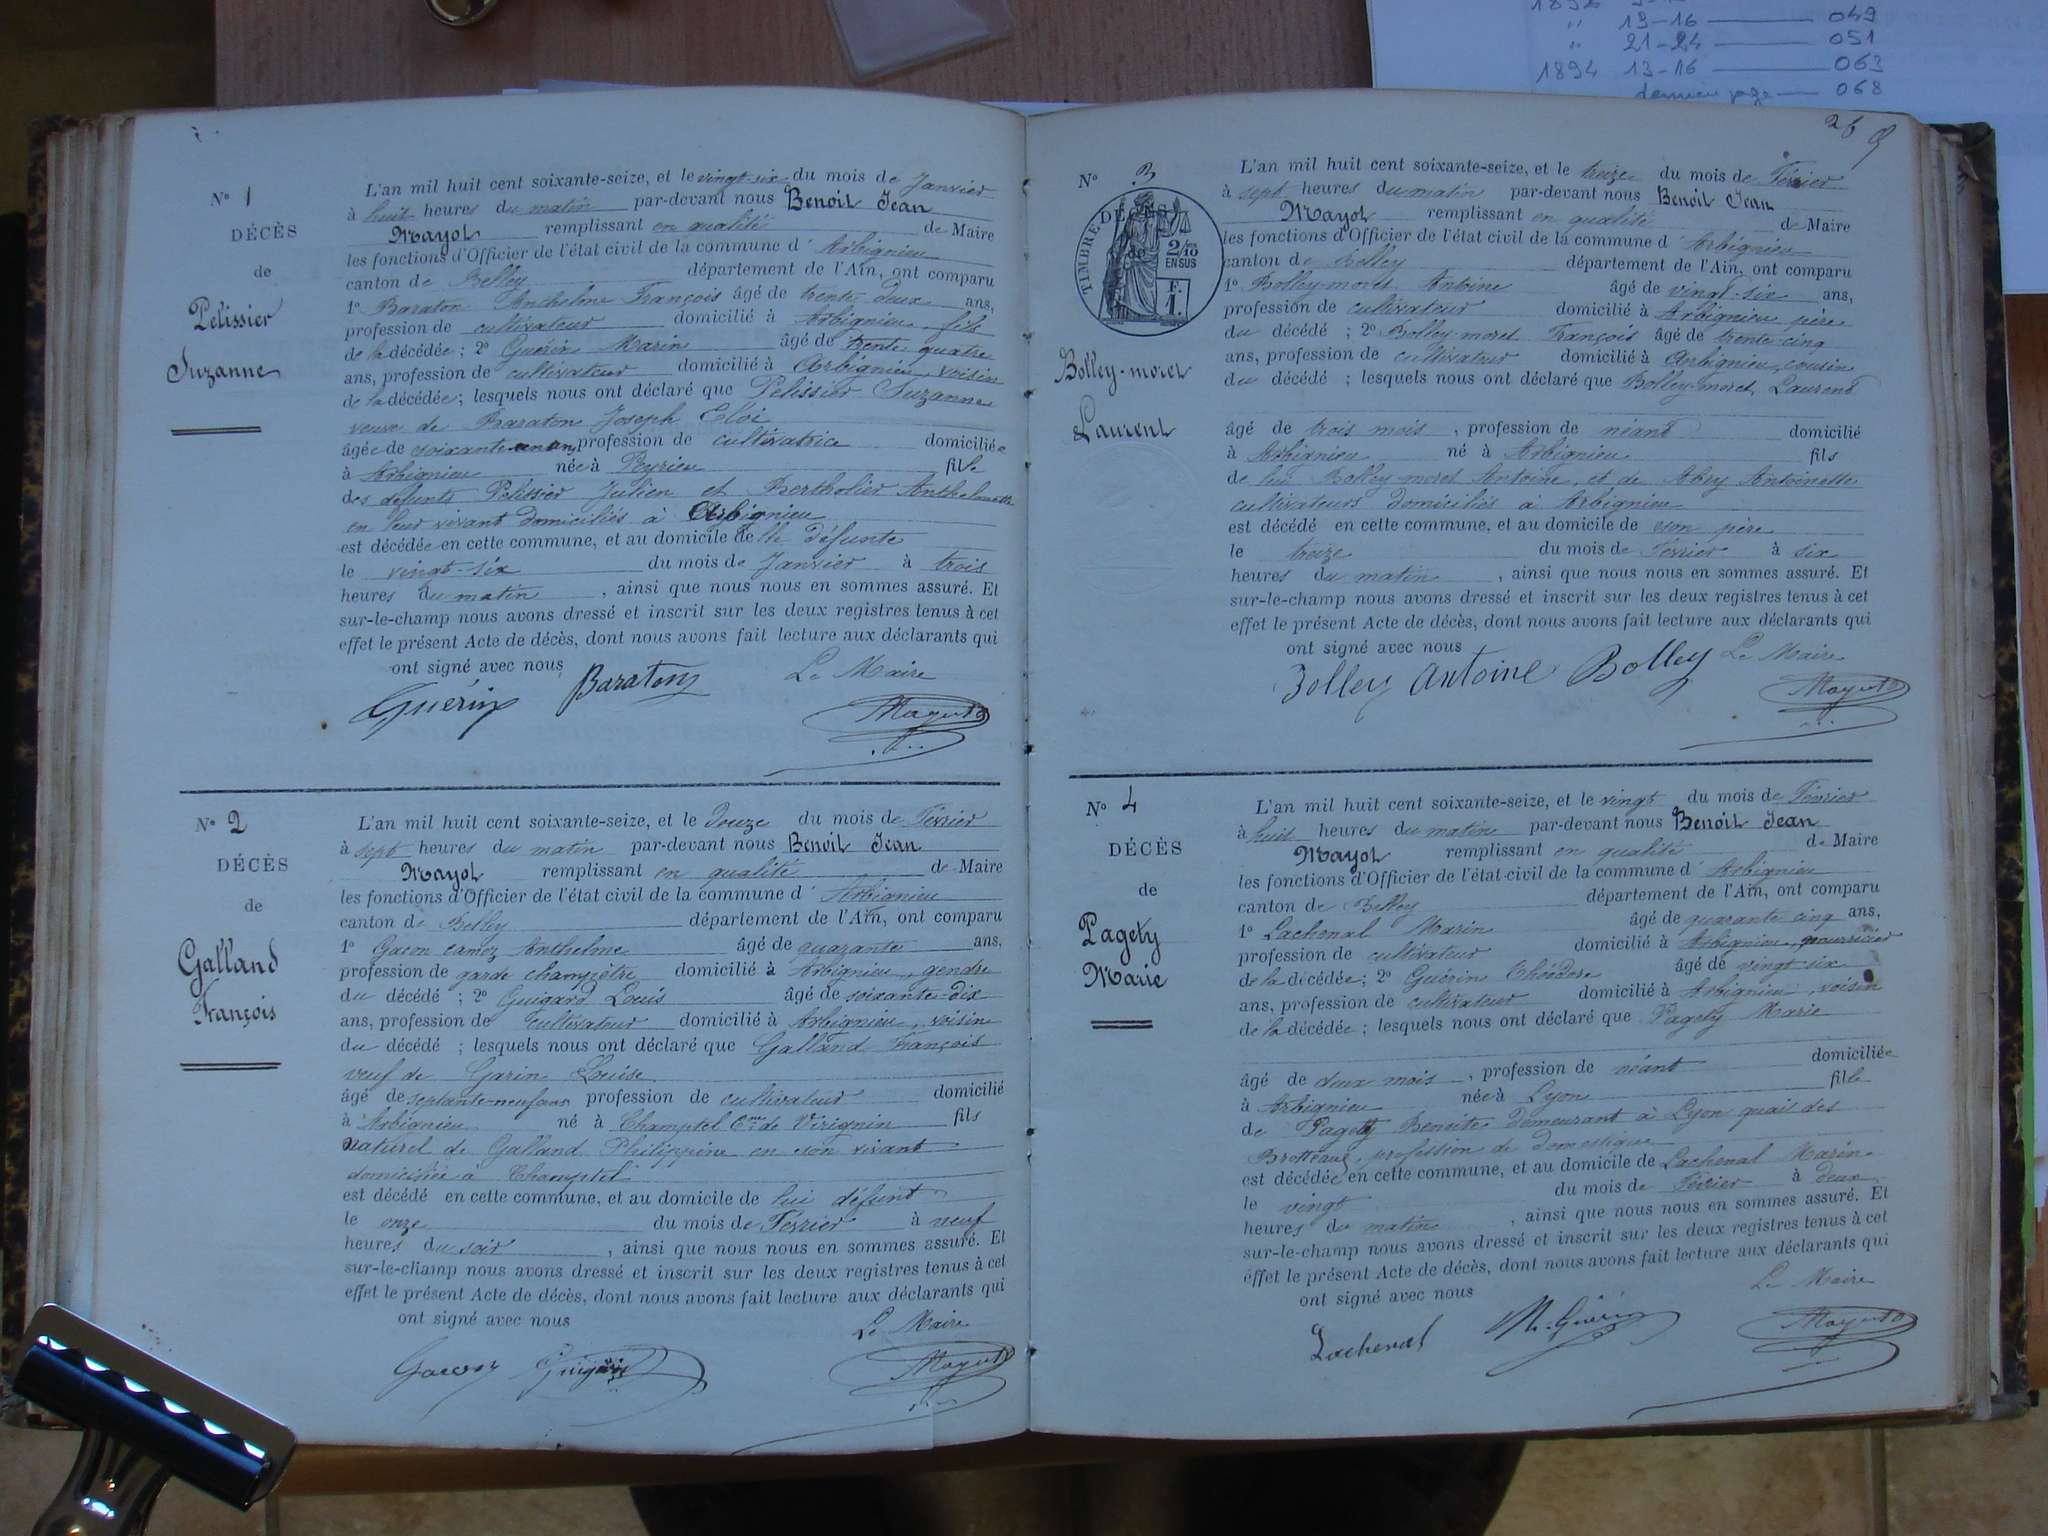 1892
" 13-16 — 049
" 21-24 — 051
1894 13-16 — 063
dernière page — 068
N° 1
DÉCÈS
de
Pelissier
Suzanne
L'an mil huit cent soixante-seize, et le vingt-six du mois de Janvier
à huit heures du matin par-devant nous Benoit Jean
Mayot remplissant en qualité de Maire
les fonctions d'Officier de l'état civil de la commune d'Arbignieu
canton de Belley département de l'Ain, ont comparu
1° Baraton Anthelme François âgé de trente deux ans,
profession de cultivateur domicilié à Arbignieu, fils
de la décédée ; 2° Guérin Marin âgé de trente quatre
ans, profession de cultivateur domicilié à Arbignieu, voisin
de la décédée ; lesquels nous ont déclaré que Pelissier Suzanne
veuve de Baraton Joseph Eloi
âgée de soixante profession de cultivatrice domiciliée
à Arbignieu née à Peyrieu fille
des défunts Pelissier Julien et Bertholier Anthelmette
en leur vivant domiciliés à Arbignieu
est décédée en cette commune, et au domicile de elle défunte
le vingt-six du mois de Janvier à trois
heures du matin, ainsi que nous nous en sommes assuré. Et
sur-le-champ nous avons dressé et inscrit sur les deux registres tenus à cet
effet le présent Acte de décès, dont nous avons fait lecture aux déclarants qui
ont signé avec nous
Le Maire
Guérin Baraton Mayot
N° 2
DÉCÈS
de
Galland
François
L'an mil huit cent soixante-seize, et le douze du mois de Février
à sept heures du matin par-devant nous Benoit Jean
Mayot remplissant en qualité de Maire
les fonctions d'Officier de l'état civil de la commune d'Arbignieu
canton de Belley département de l'Ain, ont comparu
1° Gacon camoz Anthelme âgé de quarante ans,
profession de garde champêtre domicilié à Arbignieu, gendre
du décédé ; 2° Guigard Louis âgé de soixante-dix
ans, profession de cultivateur domicilié à Arbignieu, voisin
du décédé ; lesquels nous ont déclaré que Galland François
veuf de Garin Louise
âgé de septante-neuf ans profession de cultivateur domicilié
à Arbignieu né à Champtel Cne de Virignin fils
naturel de Galland Philippine en son vivant
domiciliée à Champtel
est décédé en cette commune, et au domicile de lui défunt
le onze du mois de Février à neuf
heures du soir, ainsi que nous nous en sommes assuré. Et
sur-le-champ nous avons dressé et inscrit sur les deux registres tenus à cet
effet le présent Acte de décès, dont nous avons fait lecture aux déclarants qui
ont signé avec nous
Le Maire
Gacon Guigard Mayot
26
N° 3
DÉCÈS
de
TIMBRE
2/10
EN SUS
F.
1.
Bolley-moret
Laurent
L'an mil huit cent soixante-seize, et le treize du mois de Février
à sept heures du matin par-devant nous Benoit Jean
Mayot remplissant en qualité de Maire
les fonctions d'Officier de l'état civil de la commune d'Arbignieu
canton de Belley département de l'Ain, ont comparu
1° Bolley-moret Antoine âgé de vingt-six ans,
profession de cultivateur domicilié à Arbignieu, père
du décédé ; 2° Bolley moret François âgé de trente-cinq
ans, profession de cultivateur domicilié à Arbignieu, cousin
du décédé ; lesquels nous ont déclaré que Bolley-moret Laurent
âgé de trois mois, profession de néant domicilié
à Arbignieu né à Arbignieu fils
de lui Bolley-moret Antoine, et de Abry Antoinette
cultivateurs domiciliés à Arbignieu
est décédé en cette commune, et au domicile de son père
le treize du mois de Février à six
heures du matin, ainsi que nous nous en sommes assuré. Et
sur-le-champ nous avons dressé et inscrit sur les deux registres tenus à cet
effet le présent Acte de décès, dont nous avons fait lecture aux déclarants qui
ont signé avec nous
Le Maire
Bolley Antoine Bolley Mayot
N° 4
DÉCÈS
de
Pagety
Marie
L'an mil huit cent soixante-seize, et le vingt du mois de Février
à huit heures du matin par-devant nous Benoit Jean
Mayot remplissant en qualité de Maire
les fonctions d'Officier de l'état civil de la commune d'Arbignieu
canton de Belley département de l'Ain, ont comparu
1° Lachenal Marin âgé de quarante cinq ans,
profession de cultivateur domicilié à Arbignieu, nourricier
de la décédée ; 2° Guérin Théodore âgé de vingt-six
ans, profession de cultivateur domicilié à Arbignieu, voisin
de la décédée ; lesquels nous ont déclaré que Pagety Marie
âgé de deux mois, profession de néant domiciliée
à Arbignieu née à Lyon fille
de Pagety Benoite demeurant à Lyon quais des
Brotteaux, profession de domestique
est décédée en cette commune, et au domicile de Lachenal Marin
le vingt du mois de Février à deux
heures du matin, ainsi que nous nous en sommes assuré. Et
sur-le-champ nous avons dressé et inscrit sur les deux registres tenus à cet
effet le présent Acte de décès, dont nous avons fait lecture aux déclarants qui
ont signé avec nous
Le Maire
Lachenal Guérin Mayot